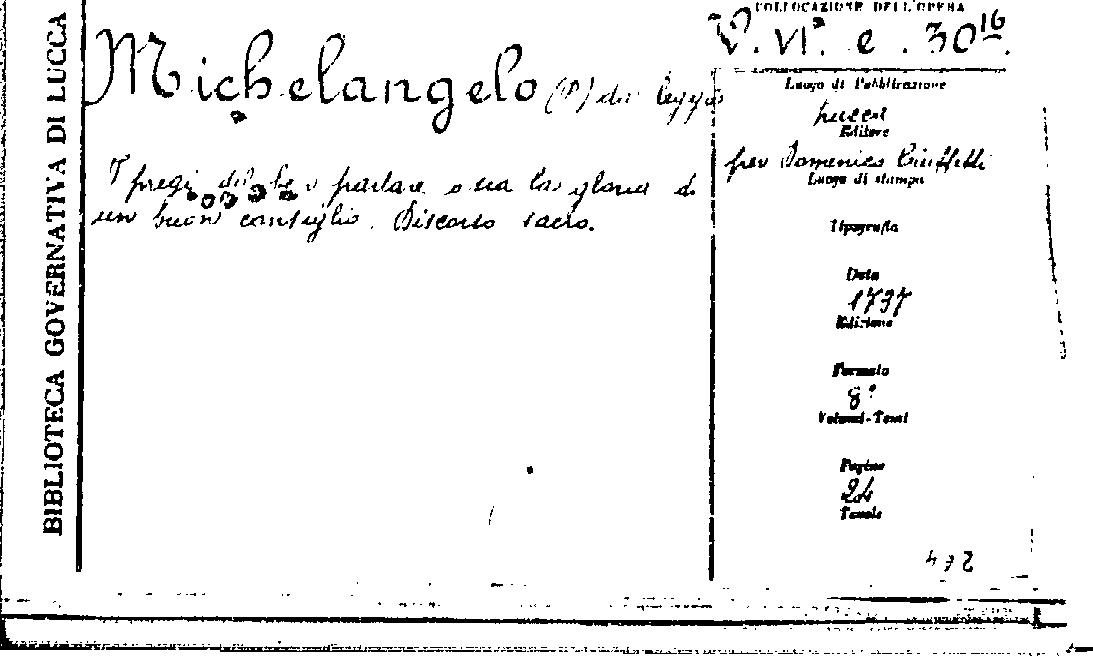 BIBLIOTECA GOVERNATIVA DI LUCCA
COLLOCAZIONE DELL'OPERA
V. VIª. e. 30¹⁶.
Michelangelo (P) da Reggio
I pregi del ben parlare o sia la gloria di
un buon consiglio. Discorso sacro.
Luogo di Pubblicazione
Lucca
Editore
per Domenico Ciuffetti
Luogo di stampa
Tipografia
Data
1737
Edizione
Formato
8º
Volumi-Tomi
Pagine
24
Tavole